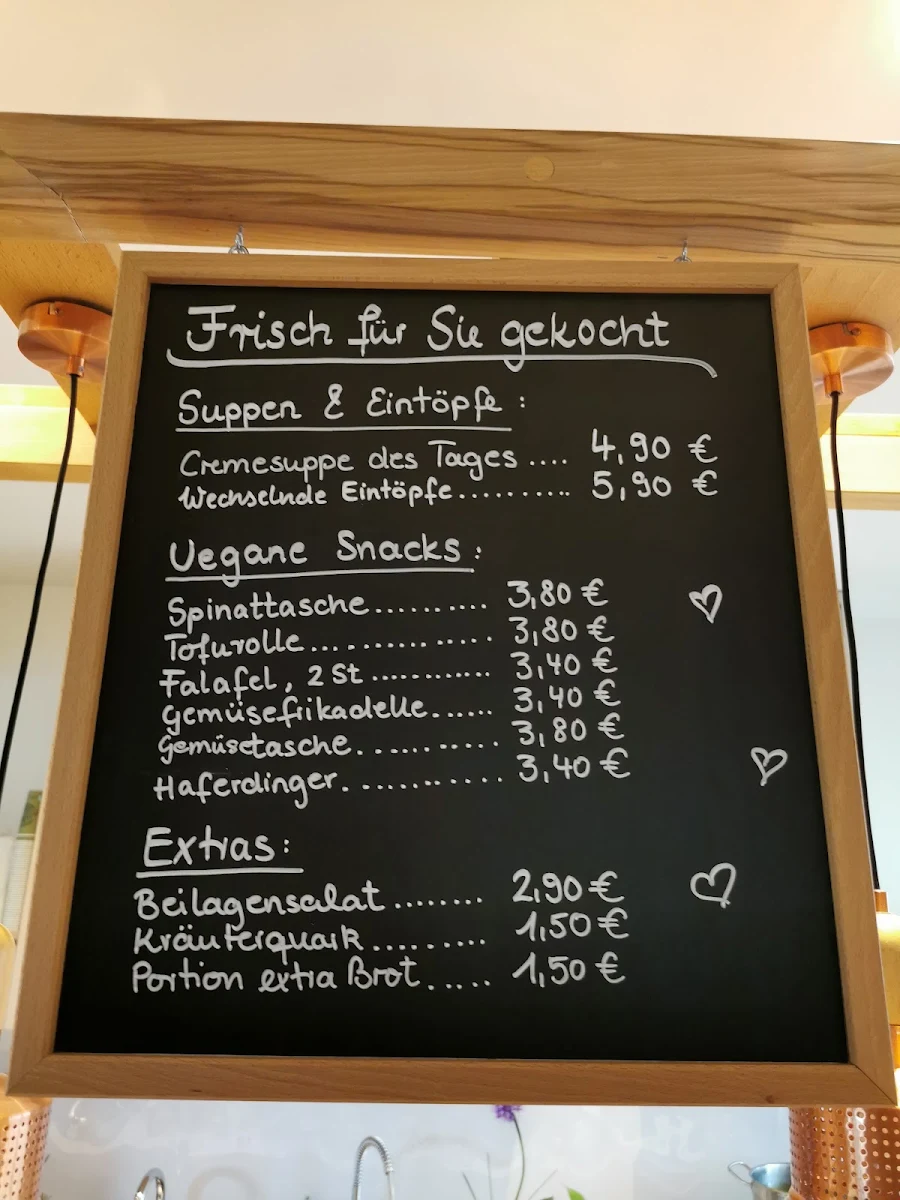 Frisch für Sie gekocht
Suppen & Eintöpfe :
Cremesuppe des Tages .... 4,90 €
Wechselnde Eintöpfe.......... 5,90 €
Vegane Snacks :
Spinattasche.......... 3,80 €
Tofurolle................ 3,80 €
Falafel, 2 St ............ 3,40 €
Gemüsefrikadelle...... 3,40 €
Gemüsetasche............ 3,80 €
Haferdinger.............. 3,40 €
Extras:
Beilagensalat ........ 2,90 €
Kräuterquark .......... 1,50 €
Portion extra Brot ..... 1,50 €